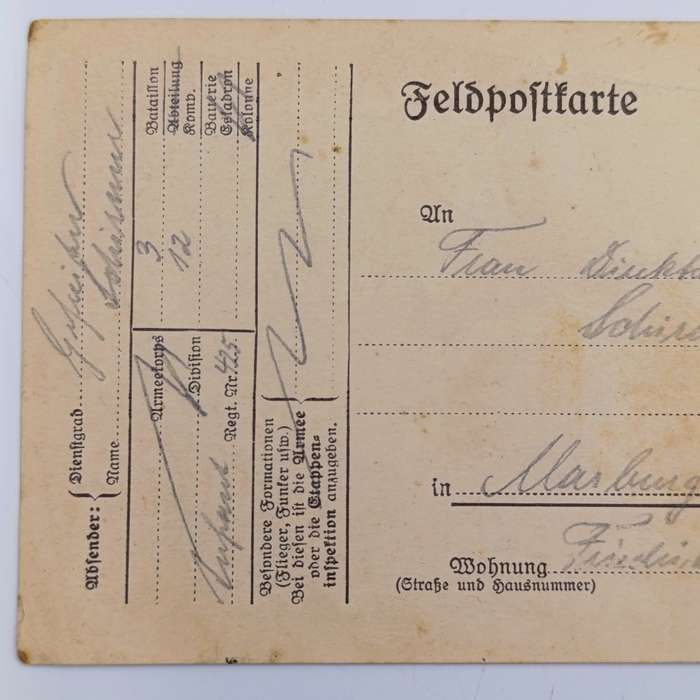 Absender:
Dienstgrad Gefreiter
Name
Bataillon 3
Abteilung
Komp. 12
Batterie
Eskadron
Kolonne
Armeekorps
Division
Infant. Regt. Nr. 425
Besondere Formationen
(Flieger, Funker usw.)
Bei diesen ist die Armee
oder die Etappen-
inspektion anzugeben.
Feldpostkarte
An
Frau
in Marburg
Wohnung
(Straße und Hausnummer)